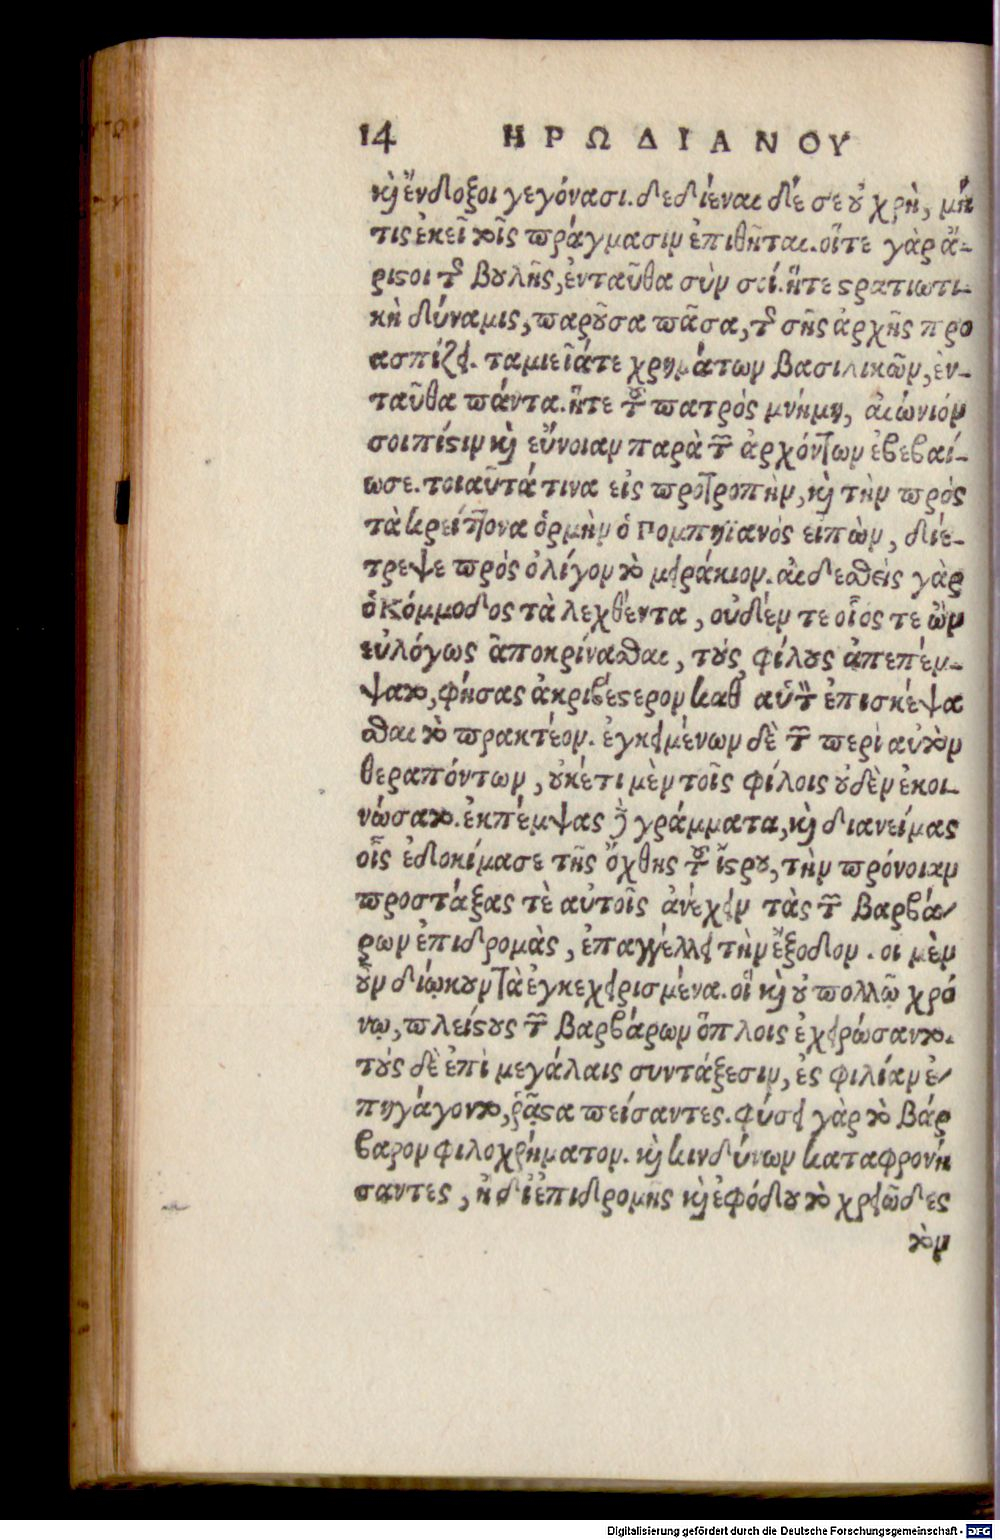 14 ΗΡΩΔΙΑΝΟΥ
κὶ ἔνδοξοι γεγόνασι. δεδιέναι δέ σε οὐ χρὴ, μή
τις ἐκεῖ τοῖς πράγμασιν ἐπιθῆται. οἵτε γὰρ ἄ-
ριστοι τῆς βουλῆς, ἐνταῦθα σὺν σοί. ἥτε στρατιωτι-
κὴ δύναμις, παροῦσα πᾶσα, τῆς σῆς ἀρχῆς προ
ασπίζει. ταμιεῖά τε χρημάτων βασιλικῶν, ἐν-
ταῦθα πάντα. ἥτε τοῦ πατρὸς μνήμη, αἰώνιόν
σοι πίστιν κὶ εὔνοιαν παρὰ τῶν ἀρχόντων ἐβεβαί-
ωσε. τοιαῦτά τινα εἰς προτροπὴν, κὶ τὴν πρὸς
τὰ κρείττονα ὁρμὴν ὁ Πομπηϊανὸς εἰπὼν, διέ-
τρεψε πρὸς ὀλίγον τὸ μειράκιον. αἰδεσθεὶς γὰρ
ὁ Κόμμοδος τὰ λεχθέντα, οὐδέν τε οἷός τε ὢν
εὐλόγως ἀποκρίνασθαι, τοὺς φίλους ἀπεπέμ-
ψατο, φήσας ἀκριβέστερον καθ αὑτὸν ἐπισκέψα
σθαι τὸ πρακτέον. ἐγκειμένων δὲ τῶν περὶ αὐτὸν
θεραπόντων, οὐκέτι μὲν τοῖς φίλοις οὐδὲν ἐκοι-
νώσατο. ἐκπέμψας δὲ γράμματα, κὶ διανείμας
οἷς ἐδοκίμασε τῆς ὄχθης τοῦ ἴστρου, τὴν πρόνοιαν
προστάξας τὲ αὐτοῖς ἀνέχειν τὰς τῶν βαρβά-
ρων ἐπιδρομὰς, ἐπαγγέλλει τὴν ἔξοδον. οι μὲν
οὖν διῴκουν τὰ ἐγκεχειρισμένα. οἳ κὶ οὐ πολλῷ χρό
νῳ, πλείστους τῶν βαρβάρων ὅπλοις ἐχειρώσαντο.
τοὺς δὲ ἐπὶ μεγάλαις συντάξεσιν, ἐς φιλίαν ἐ-
πηγάγοντο, ῥᾷστα πείσαντες. φύσει γὰρ τὸ βάρ
βαρον φιλοχρήματον. κὶ κινδύνων καταφρονή
σαντες, ἢ δι ἐπιδρομῆς κὶ ἐφόδου τὸ χρειῶδες
τὸν
Digitalisierung gefördert durch die Deutsche Forschungsgemeinschaft - DFG